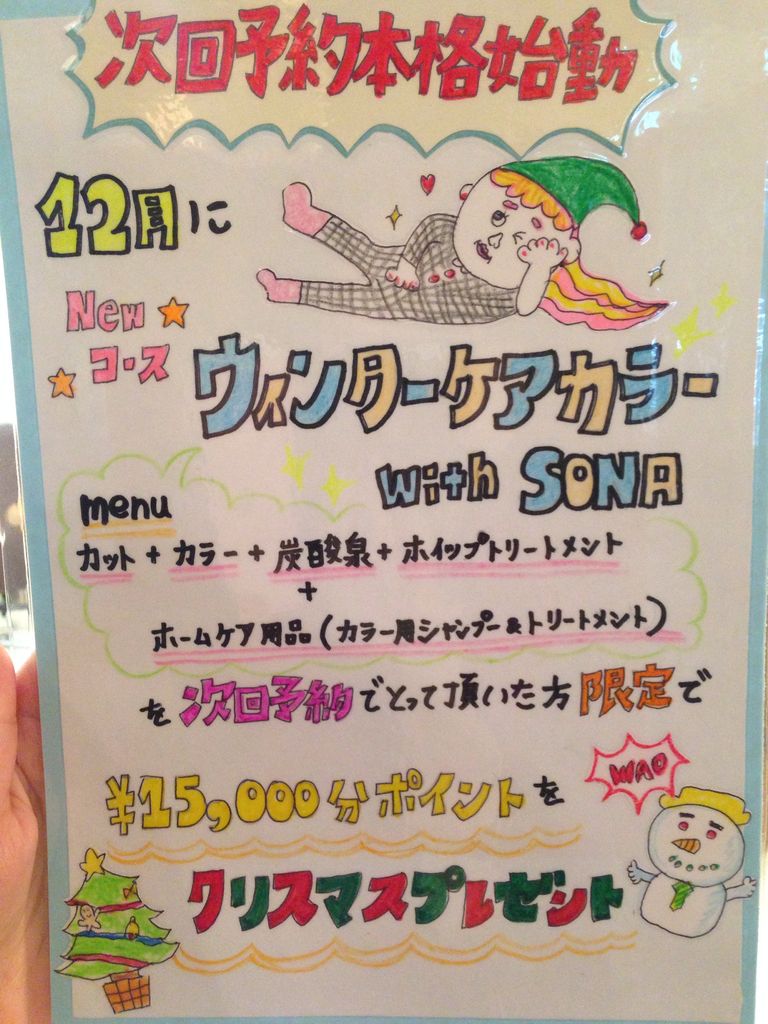 次回予約本格始動
12月に
New
コース
ウィンターケアカラー
with SONA
menu
カット + カラー + 炭酸泉 + ホイップトリートメント
+
ホームケア用品 (カラー用シャンプー&トリートメント)
を次回予約でとって頂いた方限定で
¥15,000分ポイントを
WAO
クリスマスプレゼント